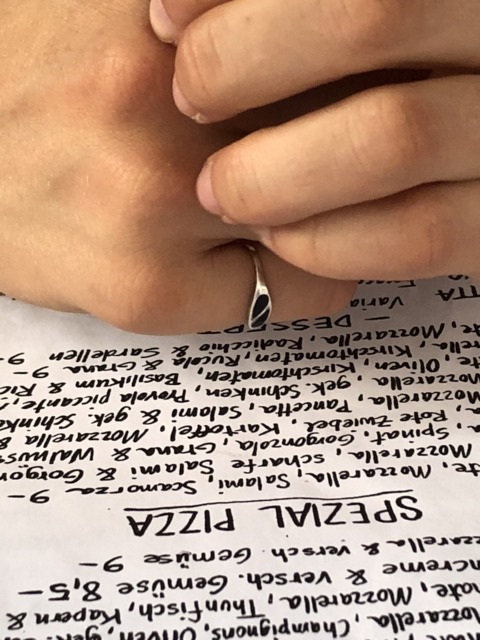 Mozzarella, Champignons, Oliven, gek.
Mozzarella, Thunfisch, Kapern &
ncreme & versch. Gemüse 8,5-
zzarella & versch. Gemüse 9-
SPEZIAL PIZZA
te, Mozzarella, Salami, Scamorza 9-
Mozzarella, scharfe Salami & Gorgon
a, Spinat, Gorgonzola, Grana & Walnuss
a, Rote Zwiebel, Kartoffel, Mozzarella &
Mozzarella, Pancetta, Salami & gek. Schink
Mozzarella, gek. Schinken, Provola piccante,
te, Oliven, Kirschtomaten, Basilikum & Ric
rella, Kirschtomaten, Rucola & Grana 9-
te, Mozzarella, Radicchio & Sardellen 9-
- DESSERT
Varia
TTA